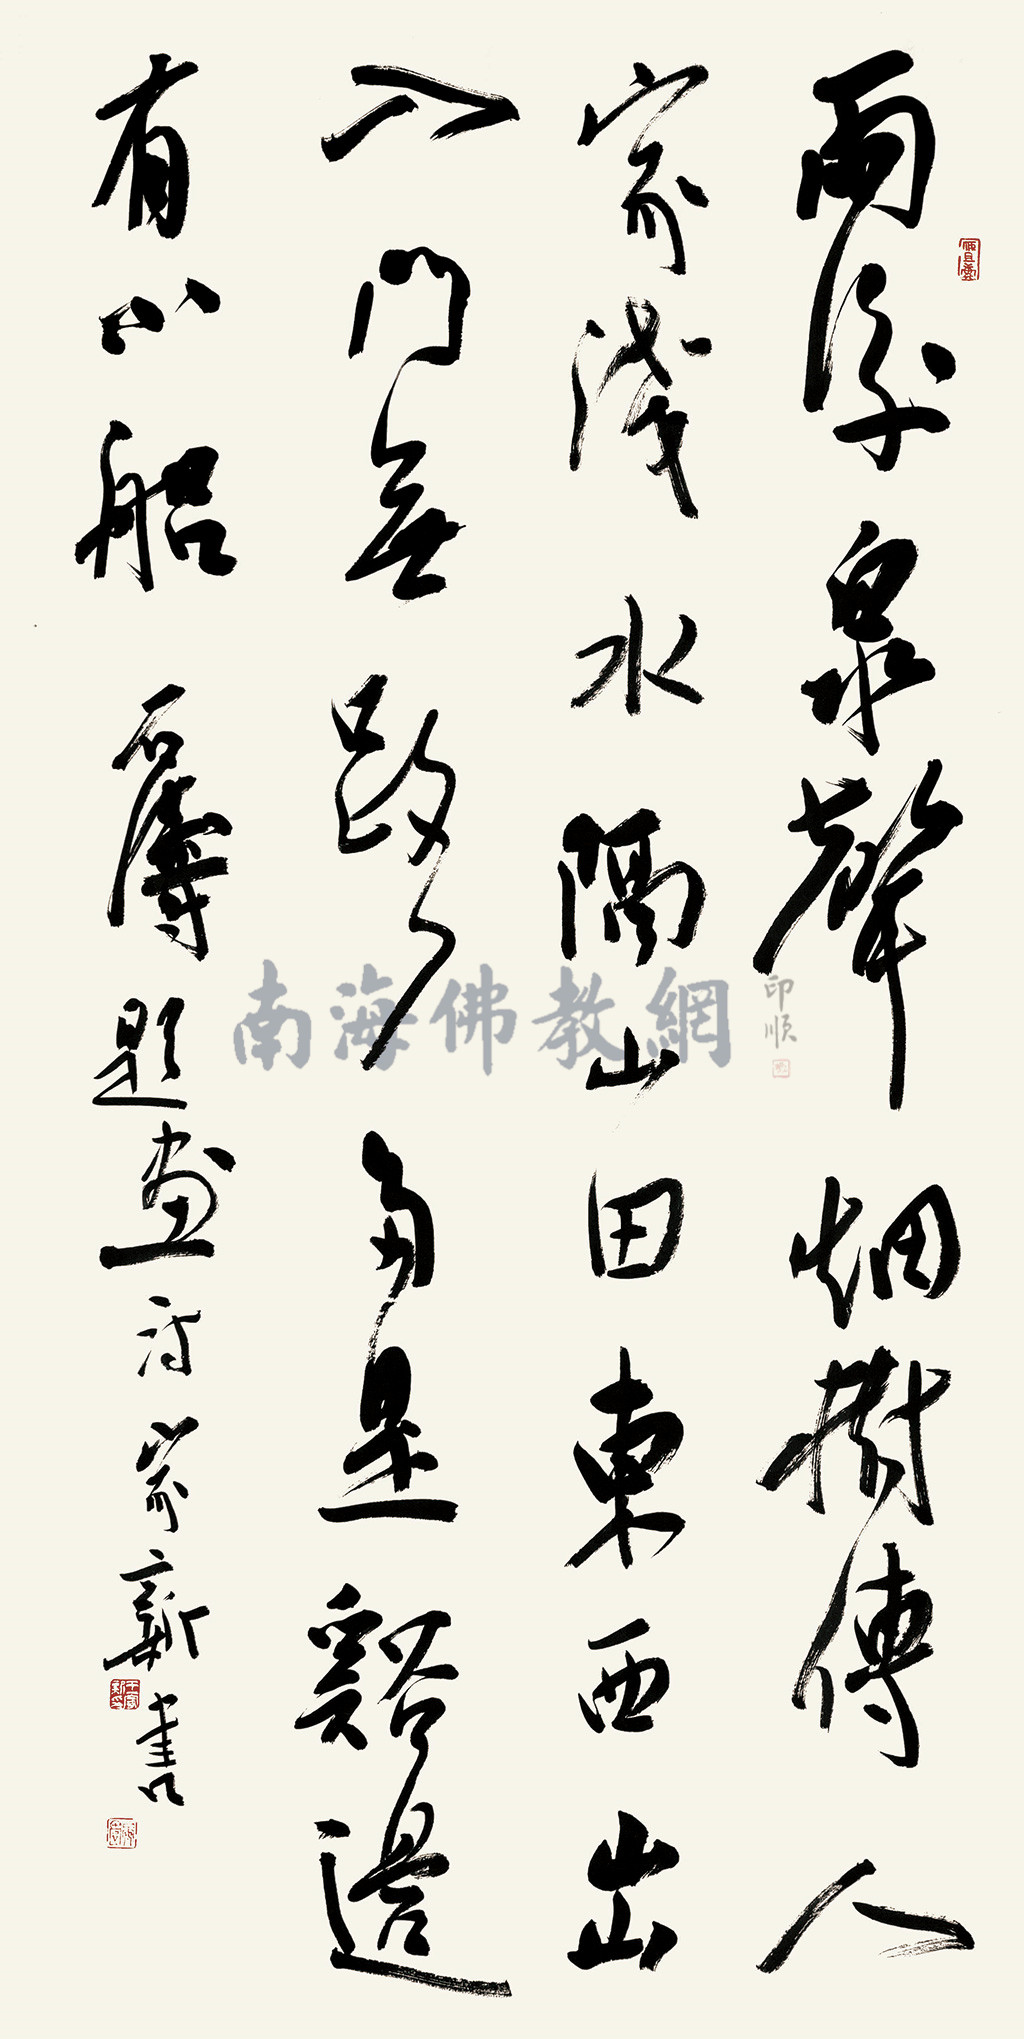 雨後泉聲烟樹傳人
家淺水隔山田東西出
入門無路多是谿邊
有小船 石濤題畫詩 家新書
南海佛教網
印順